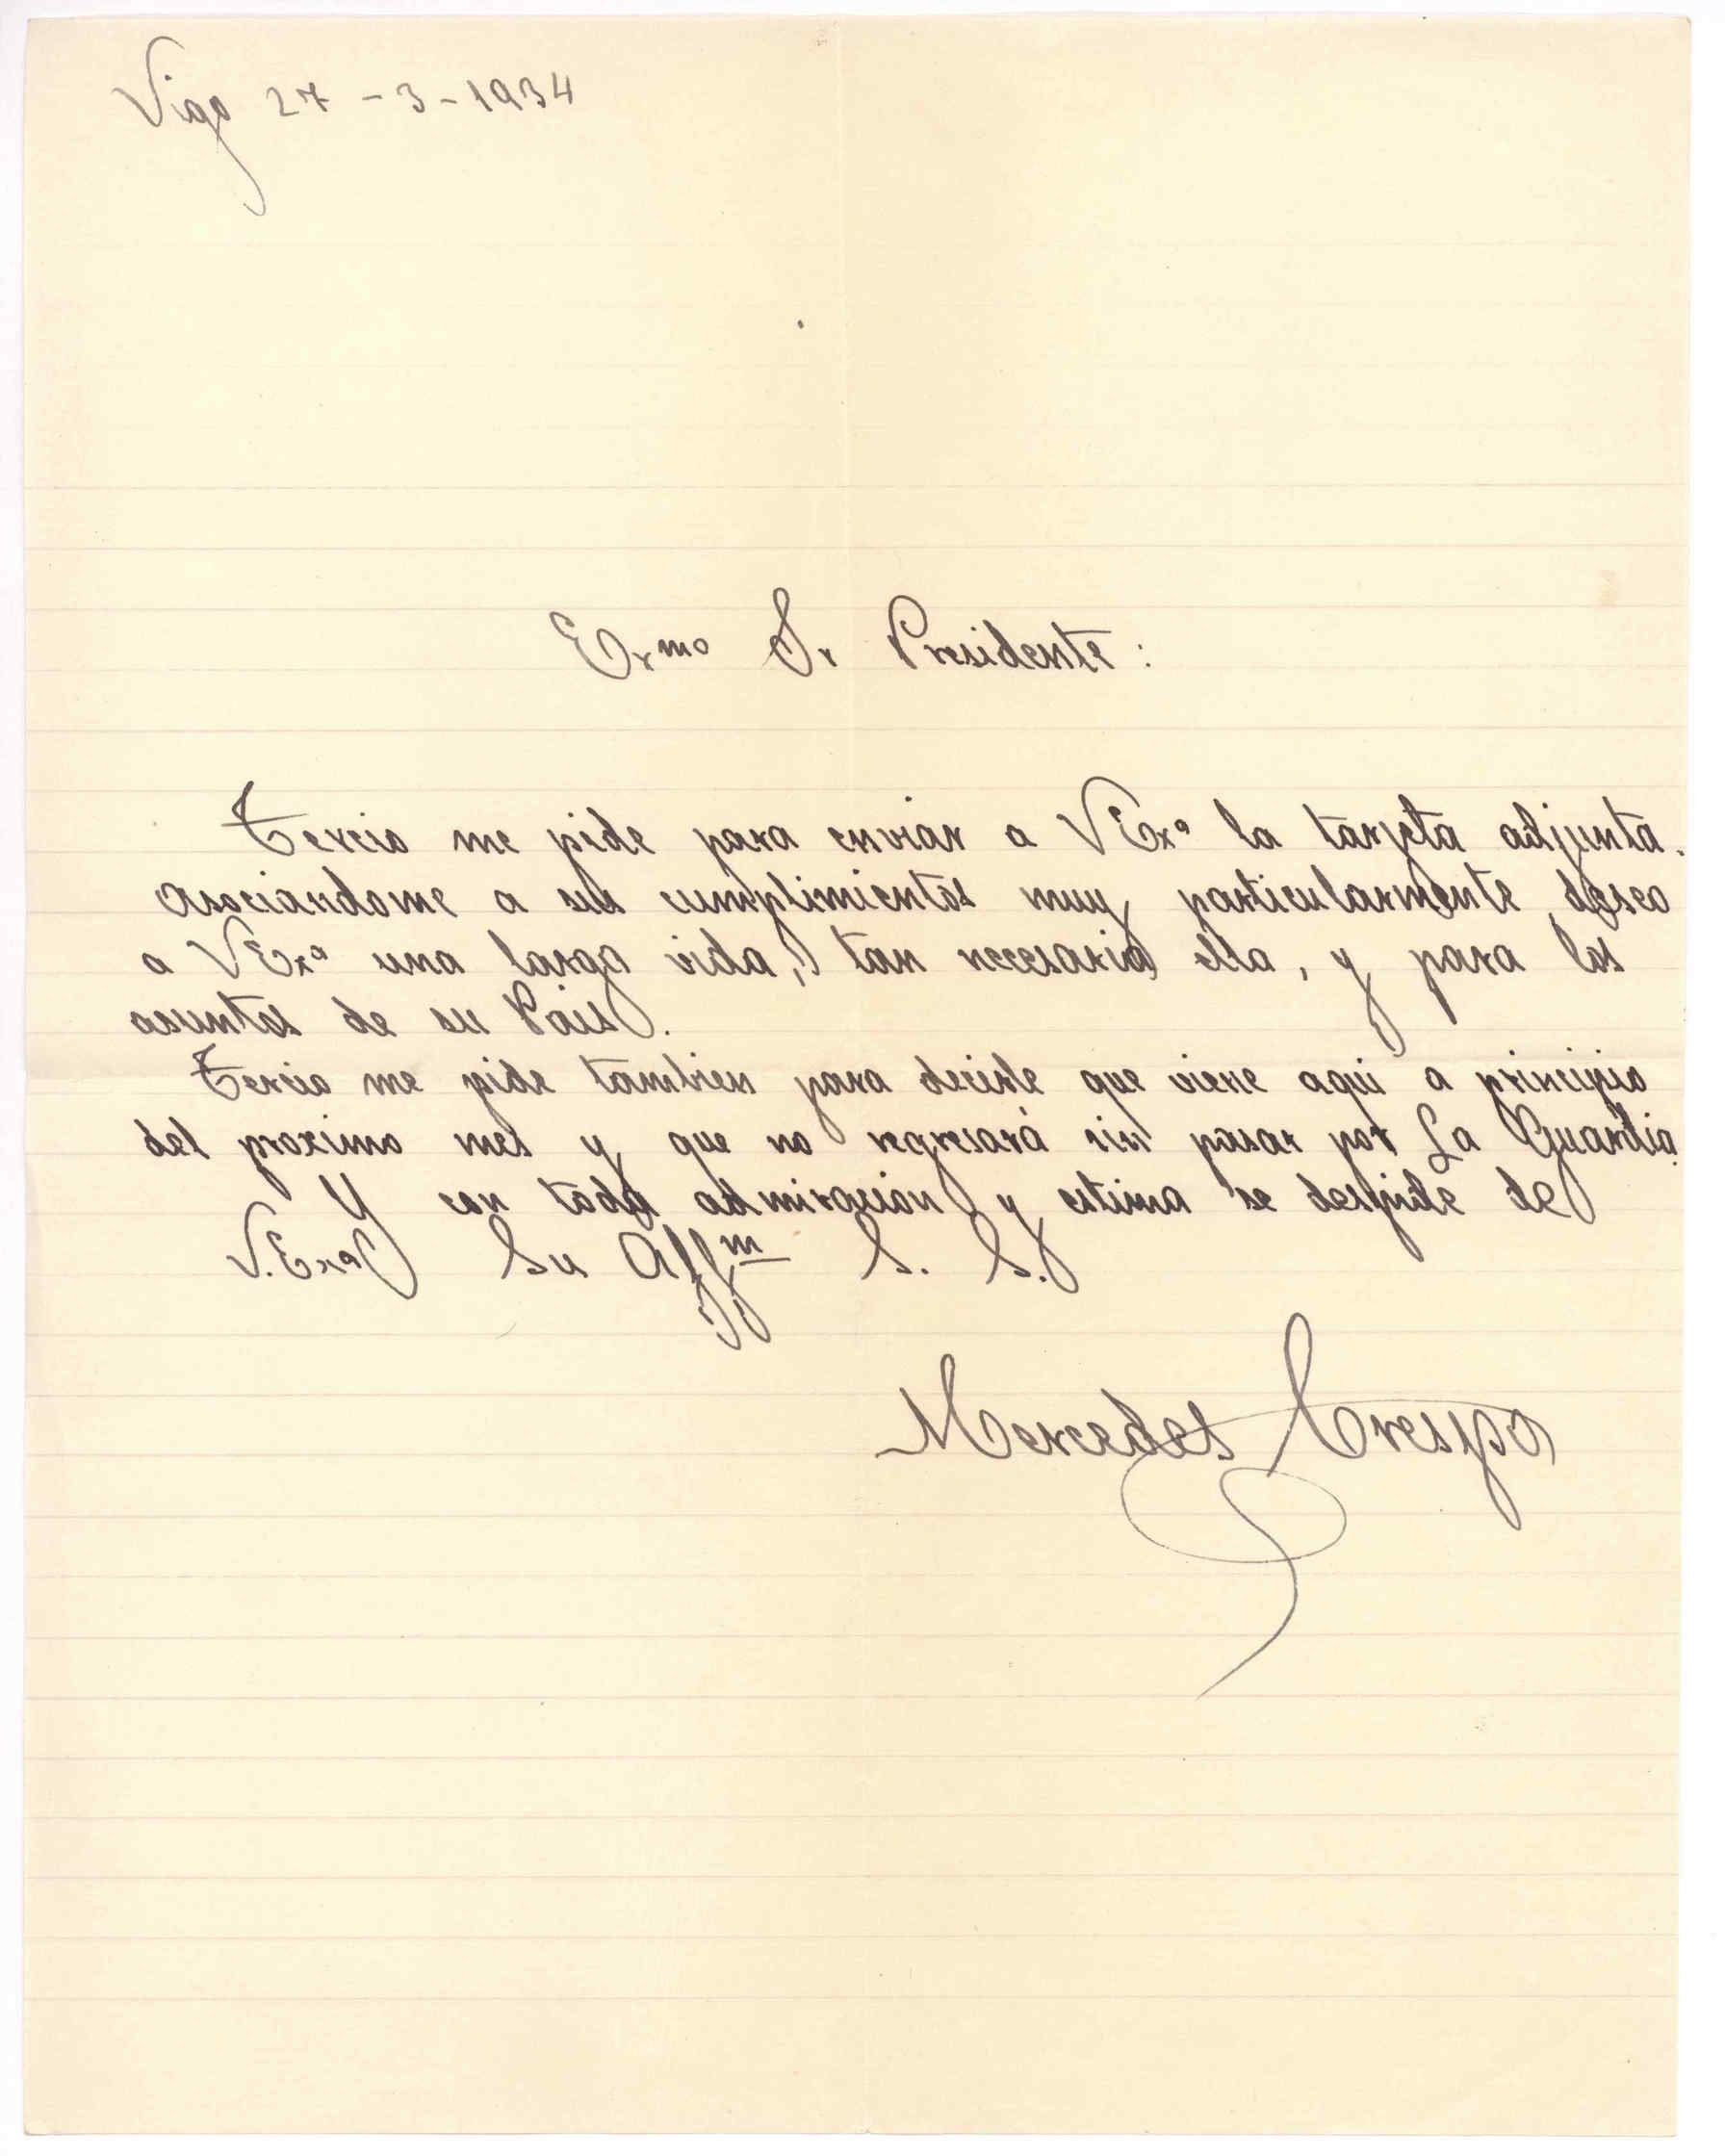 Vigo 27-3-1934
Exmo Sr Presidente:
Tercio me pide para enviar a VExª la tarjeta adjunta.
Asociandome a sus cumplimientos muy particularmente deseo
a VExª una larga vida, tan necesaria ella, y para los
asuntos de su Pais.
Tercio me pide tambien para decirle que viene aqui a principio
del proximo mes y que no regresará sin pasar por La Guardia.
Y con toda admiracion y estima se despide de
V.Exª Su Affm S. S.
Mercedes Crespo